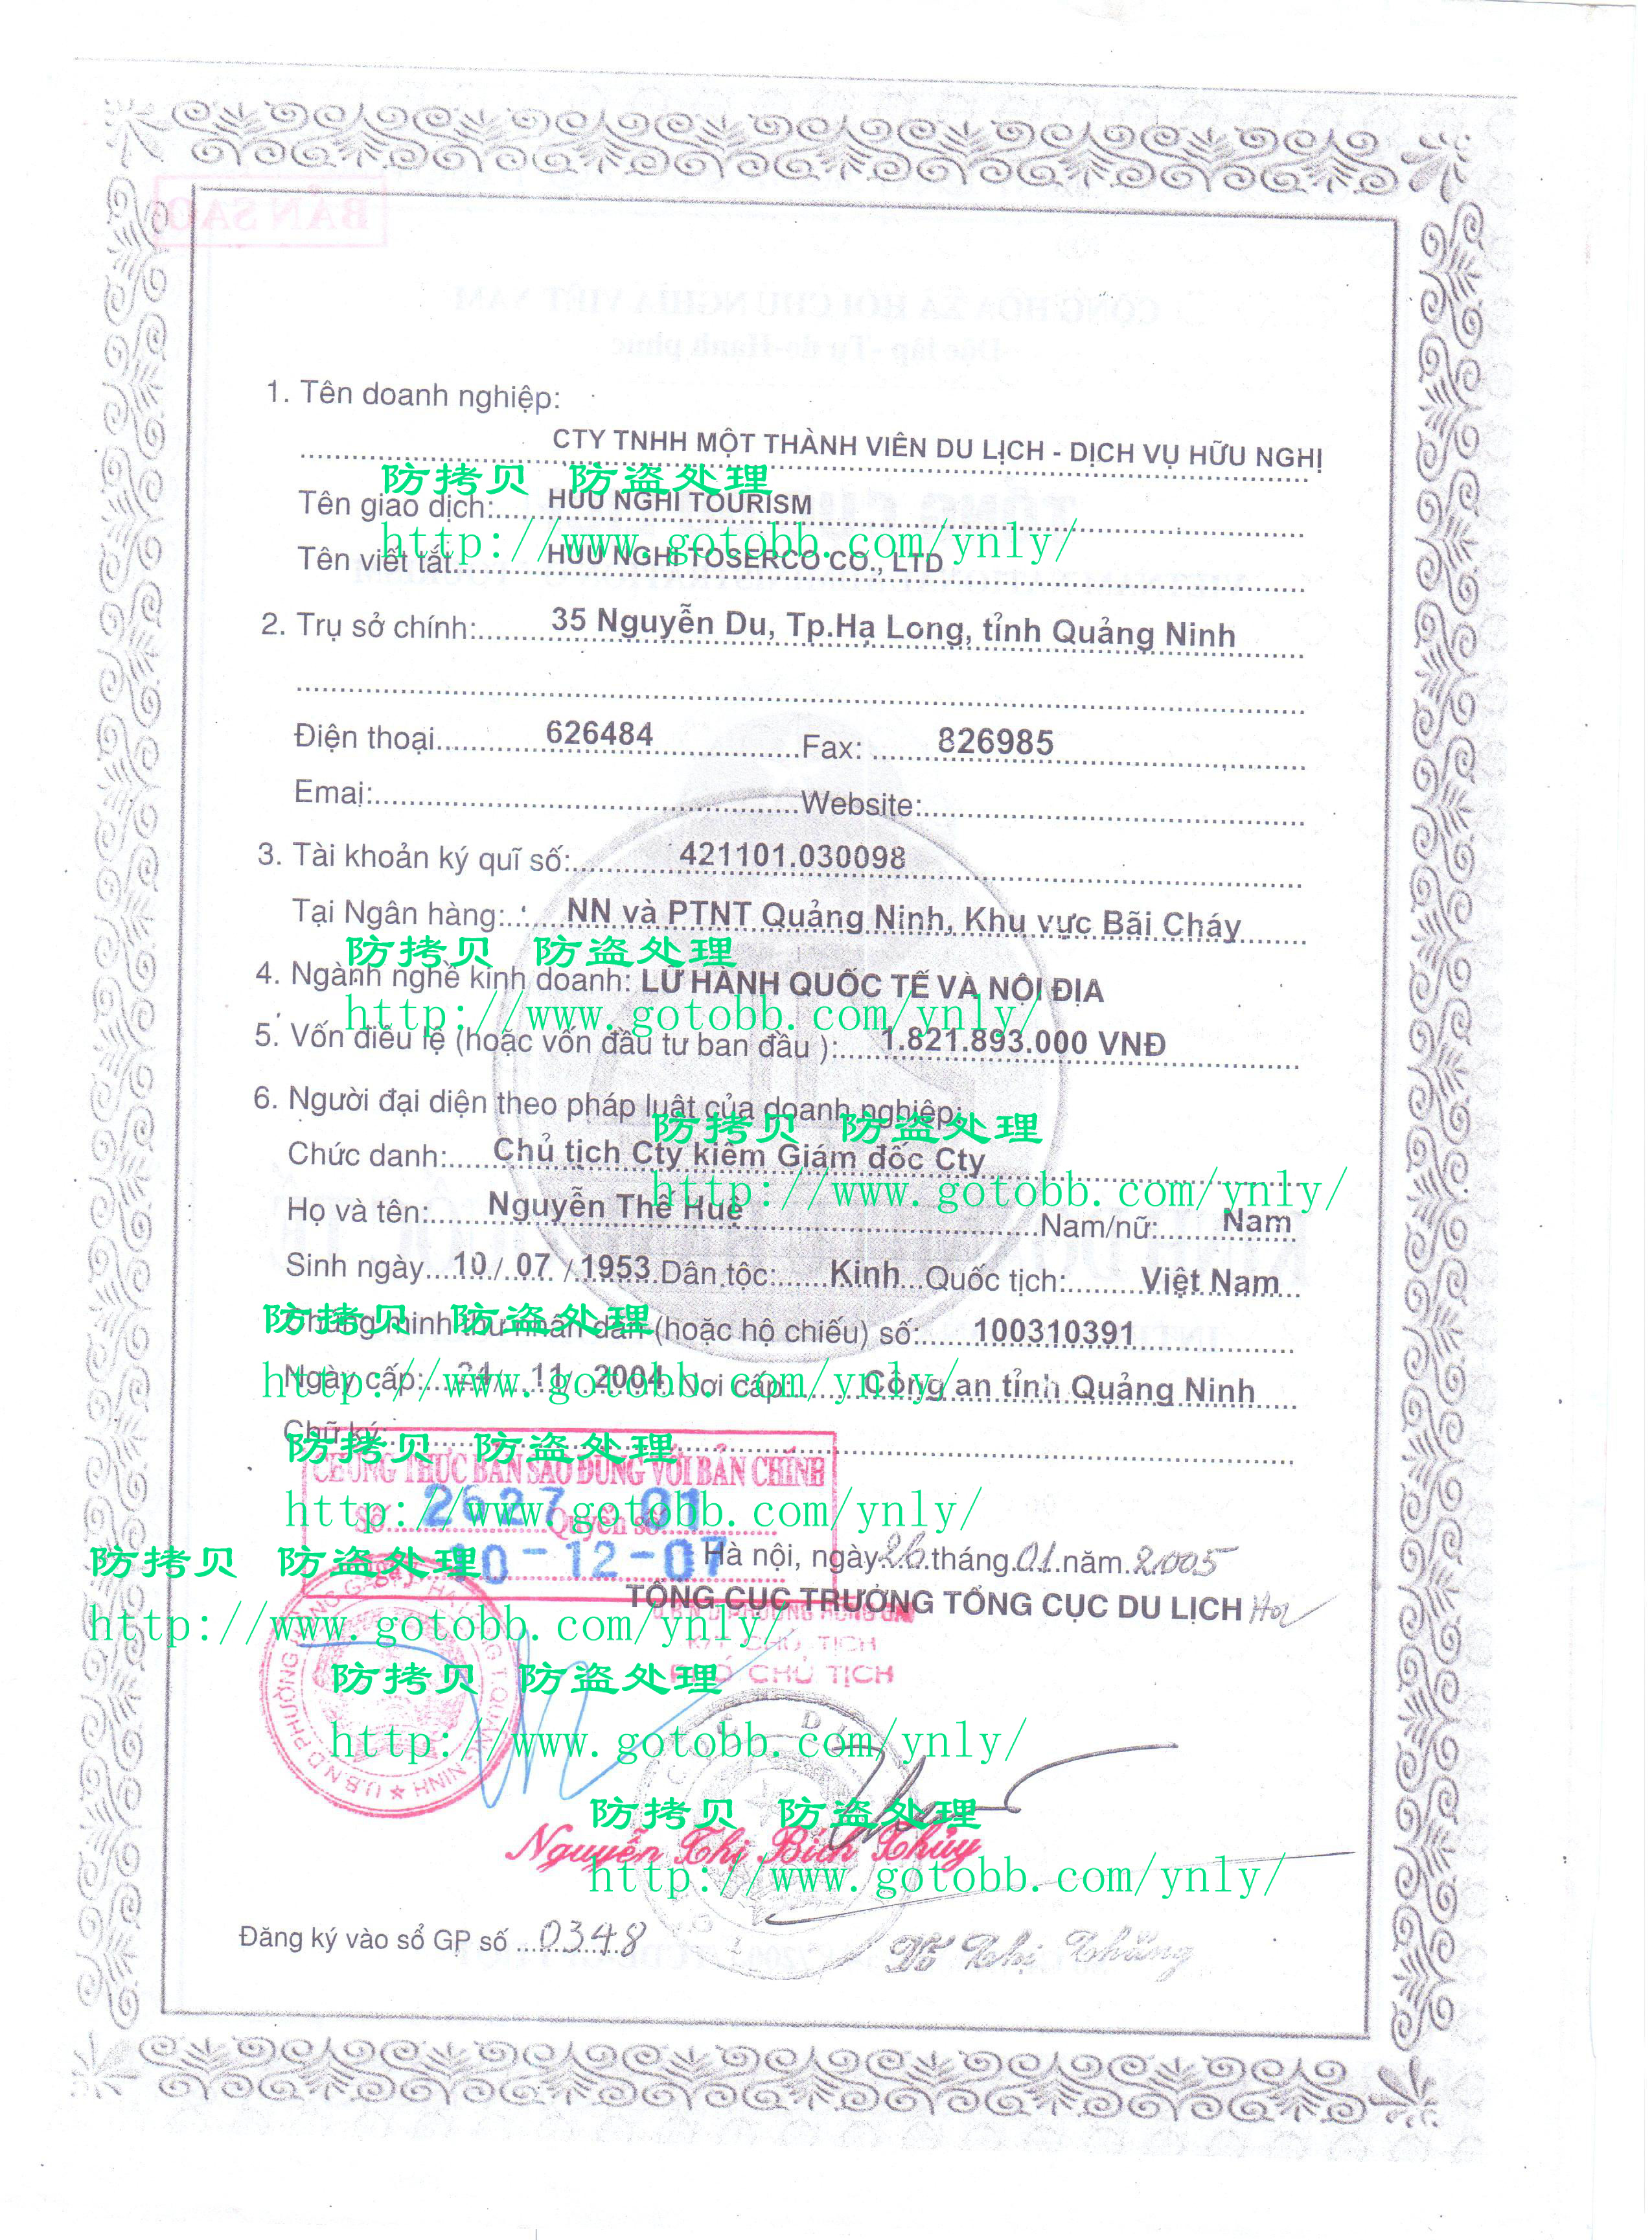 BẢN SAO
CỘNG HÒA XÃ HỘI CHỦ NGHĨA VIỆT NAM
Độc lập - Tự do - Hạnh phúc
1. Tên doanh nghiệp:
CTY TNHH MỘT THÀNH VIÊN DU LỊCH - DỊCH VỤ HỮU NGHỊ
防拷贝 防盗处理
Tên giao dịch:.....HUU NGHI TOURISM
http://www.gotobb.com/ynly/
Tên viết tắt.........HUU NGHI TOSERCO CO., LTD
2. Trụ sở chính:........35 Nguyễn Du, Tp.Hạ Long, tỉnh Quảng Ninh
Điện thoại............626484..................Fax: ........826985
Emai:.................................................Website:.................................
3. Tài khoản ký quĩ số:............421101.030098
Tại Ngân hàng:.......NN và PTNT Quảng Ninh, Khu vực Bãi Cháy
防拷贝 防盗处理
4. Ngành nghề kinh doanh: LỮ HÀNH QUỐC TẾ VÀ NỘI ĐỊA
http://www.gotobb.com/ynly/
5. Vốn điều lệ (hoặc vốn đầu tư ban đầu ):.....1.821.893.000 VNĐ
6. Người đại diện theo pháp luật của doanh nghiệp:
防拷贝 防盗处理
Chức danh:.....Chủ tịch Cty kiêm Giám đốc Cty
http://www.gotobb.com/ynly/
Họ và tên:......Nguyễn Thế Huệ.................................Nam/nữ:.......Nam
Sinh ngày...10./..07../.1953.Dân tộc:......Kinh...Quốc tịch:.........Việt Nam
防拷贝 防盗处理
Chứng minh thư nhân dân (hoặc hộ chiếu) số:......100310391
http://www.gotobb.com/ynly/
Ngày cấp:...24/..11/..2004.Nơi cấp:.........Công an tỉnh Quảng Ninh
Chữ ký:
防拷贝 防盗处理
CHỨNG THỰC BẢN SAO ĐÚNG VỚI BẢN CHÍNH
http://www.gotobb.com/ynly/
Số 2627 Quyển số 01
防拷贝 防盗处理
10-12-07
Hà nội, ngày 26 tháng 01 năm 2005
TỔNG CỤC TRƯỞNG TỔNG CỤC DU LỊCH
http://www.gotobb.com/ynly/
U.B.N.D PHƯỜNG HỒNG GAI
K/T CHỦ TỊCH
PHÓ CHỦ TỊCH
防拷贝 防盗处理
http://www.gotobb.com/ynly/
U.B.N.D PHƯỜNG HỒNG GAI
防拷贝 防盗处理
Nguyễn Thị Bích Thủy
http://www.gotobb.com/ynly/
Đăng ký vào sổ GP số ...0348
Võ Thị Thắng